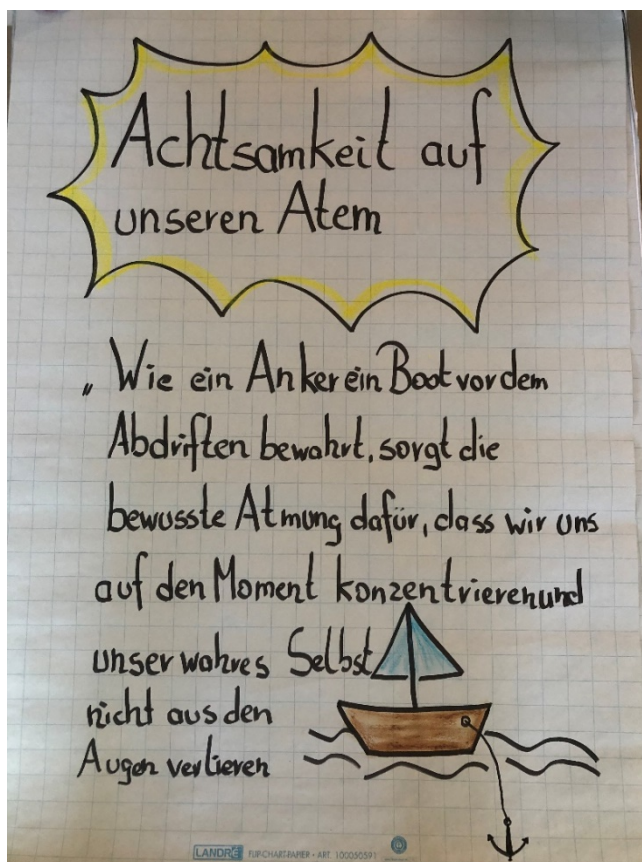 Achtsamkeit auf
unseren Atem
„ Wie ein Anker ein Boot vor dem
Abdriften bewahrt, sorgt die
bewusste Atmung dafür, dass wir uns
auf den Moment konzentrieren und
unser wahres Selbst
nicht aus den
Augen verlieren
LANDRÉ FLIP-CHART-PAPIER - ART. 100050591